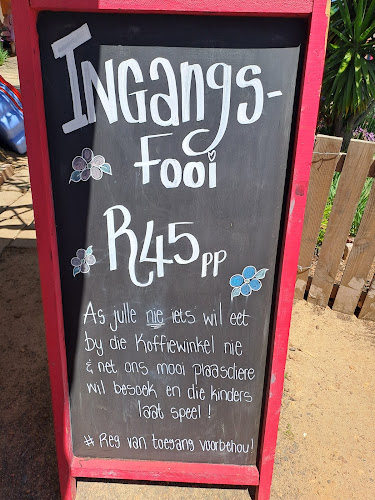 INGangs-
Fooi
R45 pp
As julle nie iets wil eet
by die Koffiewinkel nie
& net ons mooi plaasdiere
wil besoek en die kinders
laat speel!
# Reg van toegang voorbehou!